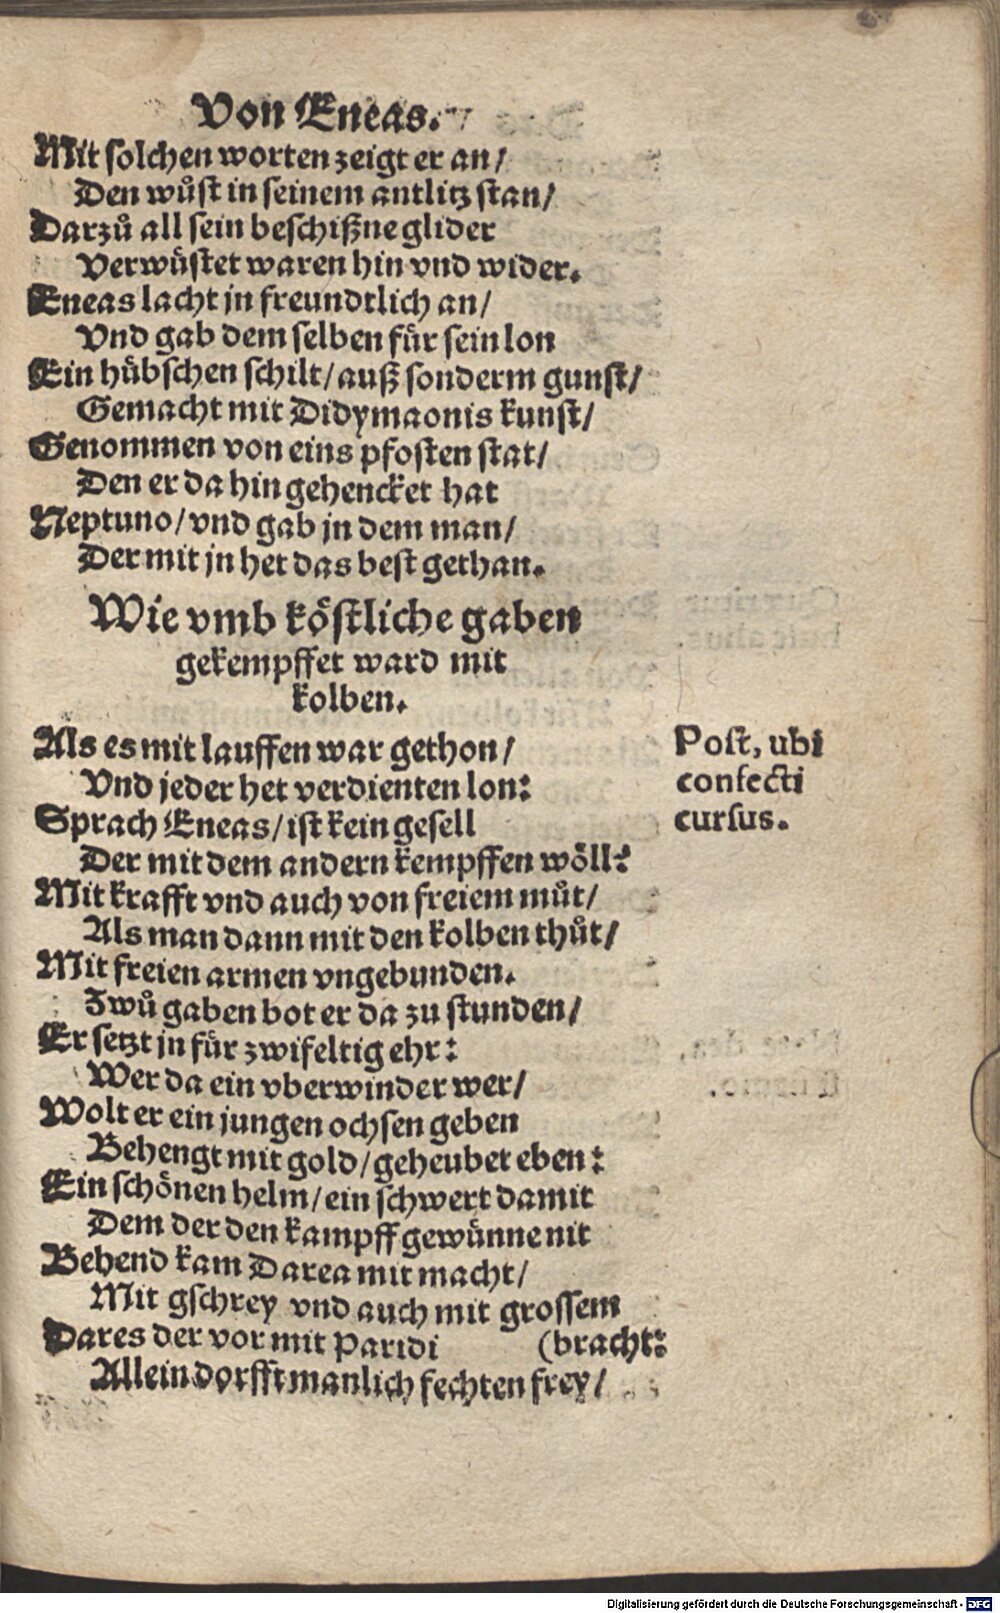 Von Eneas.
Mit solchen worten zeigt er an/
Den wuͦst in seinem antlitz stan/
Darzuͦ all sein beschißne glider
Verwuͤstet waren hin vnd wider.
Eneas lacht jn freundtlich an/
Vnd gab dem selben fuͤr sein lon
Ein huͤbschen schilt/ auß sonderm gunst/
Gemacht mit Didymaonis kunst/
Genommen von eins pfosten stat/
Den er da hin gehencket hat
Neptuno/ vnd gab jn dem man/
Der mit jn het das best gethan.
Wie vmb koͤstliche gaben
gekempffet ward mit
kolben.
Als es mit lauffen war gethon/
Vnd jeder het verdienten lon:
Sprach Eneas/ ist kein gesell
Der mit dem andern kempffen woͤll:
Mit krafft vnd auch von freiem muͦt/
Als man dann mit den kolben thuͦt/
Mit freien armen vngebunden.
Zwuͦ gaben bot er da zu stunden/
Er setzt jn fuͤr zwifeltig ehr:
Wer da ein vberwinder wer/
Wolt er ein jungen ochsen geben
Behengt mit gold/ geheubet eben:
Ein schoͤnen helm/ ein schwert damit
Dem der den kampff gewuͤnne nit
Behend kam Darea mit macht/
Mit gschrey vnd auch mit grossem
Dares der vor mit Paridi (bracht:
Allein dorfft manlich fechten frey/
Post, ubi
confecti
cursus.
Digitalisierung gefördert durch die Deutsche Forschungsgemeinschaft - DFG